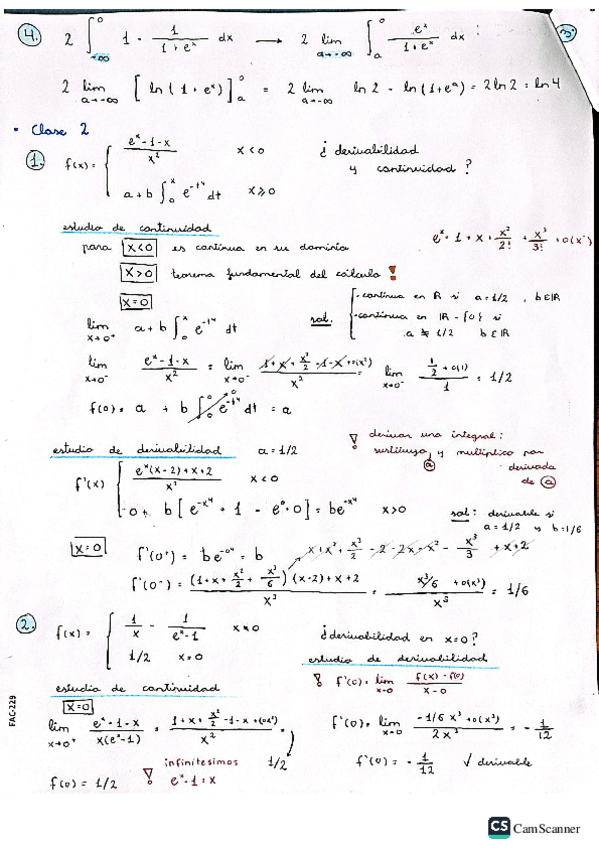 4. 2 ∫_{-∞}^{0} 1 · 1/(1+e^x) dx → 2 lim_{a→-∞} ∫_{a}^{0} e^x/(1+e^x) dx :
3.
2 lim_{a→-∞} [ ln(1+e^x) ]_{a}^{0} = 2 lim_{a→-∞} ln 2 - ln(1+e^a) = 2 ln 2 = ln 4
• Clase 2
1. f(x) = { (e^x-1-x)/x² x<0
a+b ∫_{0}^{x} e^{-t⁴} dt x≥0
¿ derivabilidad y continuidad ?
estudio de continuidad
para x<0 es continua en su dominio
e^x = 1 + x + x²/2! + x³/3! + o(x³)
x>0 teorema fundamental del cálculo !
x=0
lim_{x→0⁺} a+b ∫_{0}^{x} e^{-t⁴} dt
sol. - continua en R si a=1/2, b∈IR
- continua en IR-{0} si
a≠1/2 b∈IR
lim_{x→0⁻} (e^x-1-x)/x² = lim_{x→0⁻} (1+x+x²/2-1-x+o(x²))/x² = lim_{x→0⁻} (1/2+o(1))/1 = 1/2
f(0) = a + b ∫_{0}^{0} e^{-t⁴} dt = a
estudio de derivabilidad a=1/2
! derivar una integral:
sustituyo y multiplico por
a derivada
de a
f'(x) { (e^x(x-2)+x+2)/x³ x<0
0 + b [ e^{-x⁴} · 1 - e⁰·0 ] = be^{-x⁴} x>0
sol: derivable si
a=1/2 y b=1/6
x=0 f'(0⁺) = be^{-0⁴} = b
x+x²+x³/2-2-2x-x²-x³/3+x+2
f'(0⁻) = ((1+x+x²/2+x³/6)(x-2)+x+2)/x³ = (x³/6+o(x³))/x³ = 1/6
2. f(x) = { 1/x - 1/(e^x-1) x≠0
1/2 x=0
¿derivabilidad en x=0?
estudio de derivabilidad
! f'(0) = lim_{x→0} (f(x)-f(0))/(x-0)
estudio de continuidad
x=0
lim_{x→0⁺} (e^x-1-x)/(x(e^x-1)) = (1+x+x²/2-1-x+o(x²))/x² =
1/2
f'(0) = lim_{x→0} (-1/6 x³+o(x³))/(2x³) = -1/12
f(0) = 1/2
! infinitesimos
e^x-1=x
f'(0) = -1/12 √ derivable
FAC-229
CS CamScanner